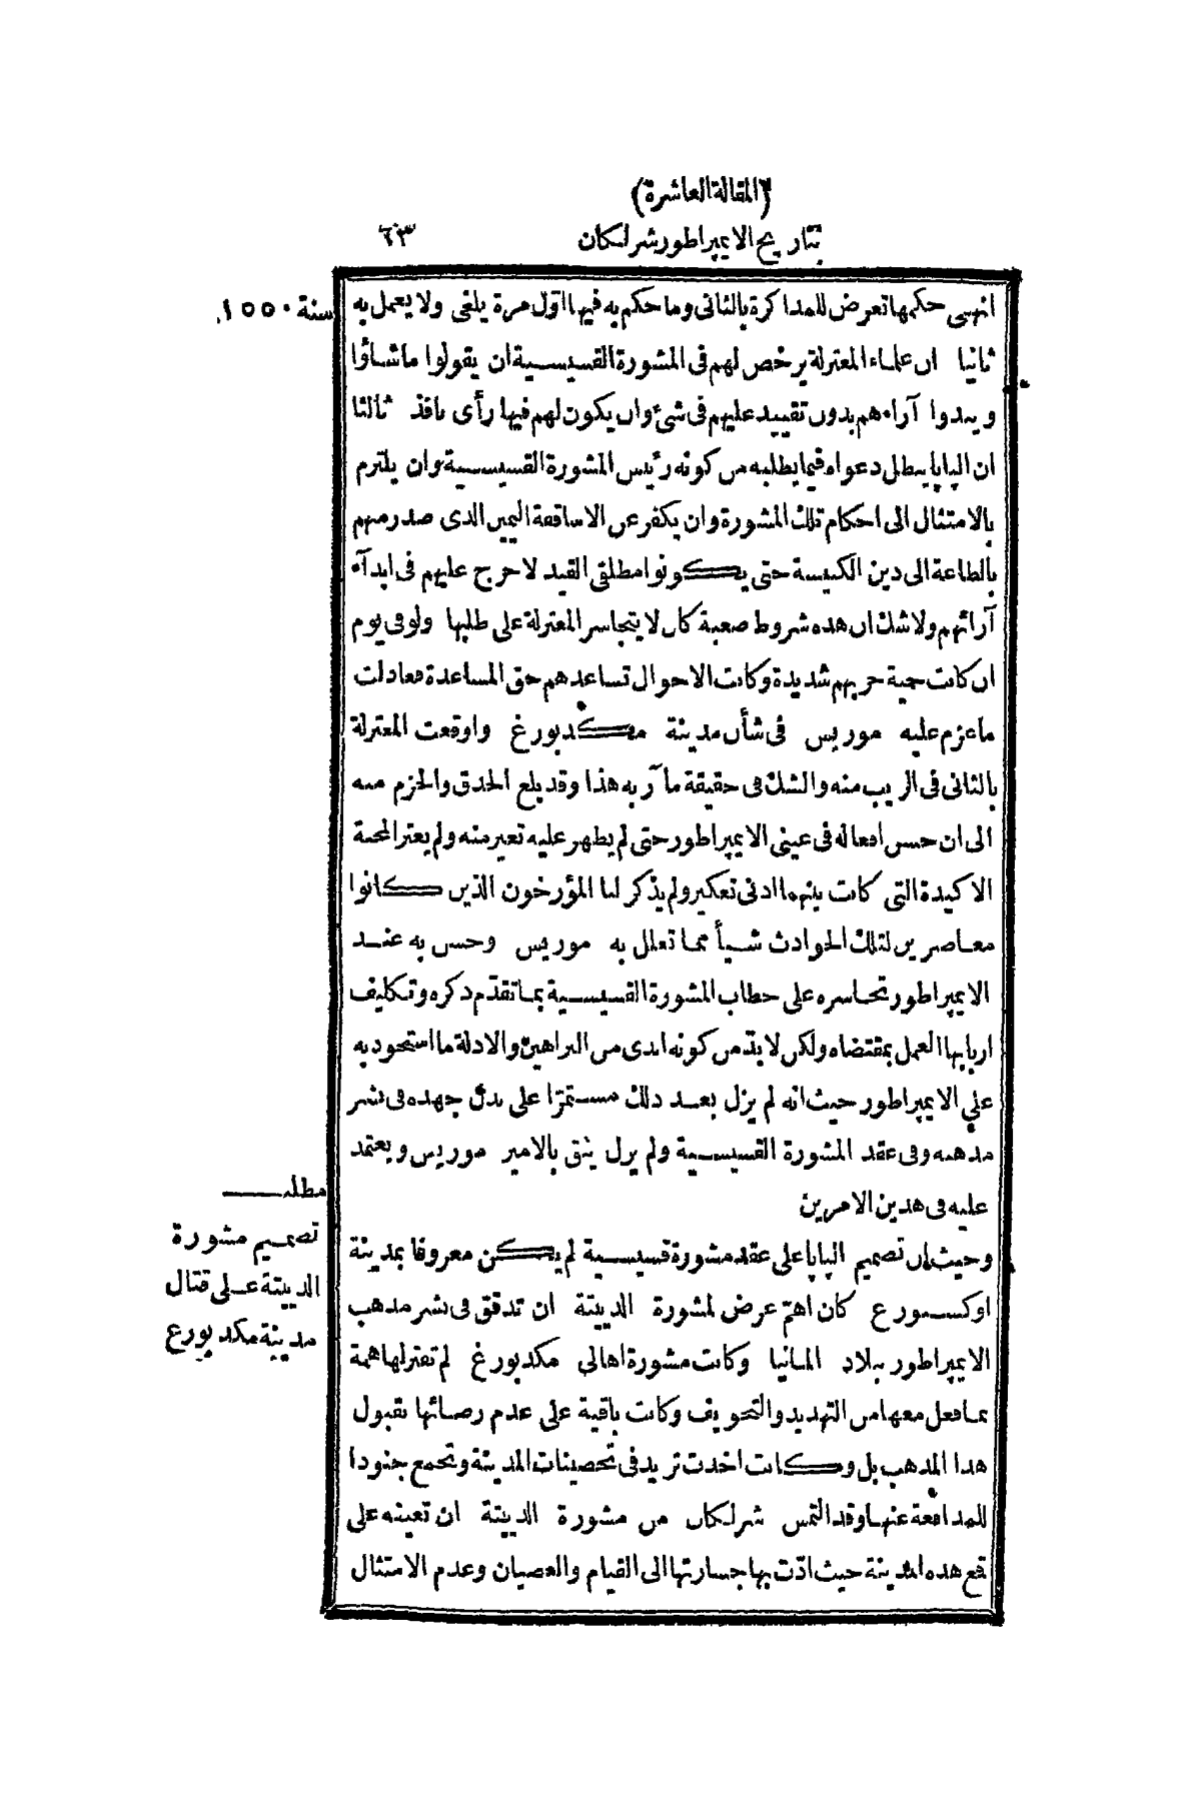 (المقالة العاشرة)
بتاريخ الايمپراطور شرلكان
٦٣
سنة ١٥٥٠
انهى حكمها تعرض للمذاكرة بالثانى وما حكم به فيها اوّل مرة يلغى ولا يعمل به
ثانيا ان علماء المعتزلة يرخص لهم فى المشورة القسيسية ان يقولوا ما شاؤا
ويبدوا آراءهم بدون تقييد عليهم فى شئ وان يكون لهم فيها رأى نافذ ثالثا
ان الپاپا يبطل دعواه فيما يطلبه من كونه رئيس المشورة القسيسية وان يلتزم
بالامتثال الى احكام تلك المشورة وان يكفر عن الاساقفة اليمين الذى صدر منهم
بالطاعة الى دين الكنيسة حتى يكونوا مطلقى القيد لا حرج عليهم فى ابداء
آرائهم ولا شك ان هذه شروط صعبة كان لا يتجاسر المعتزلة على طلبها ولو فى يوم
ان كانت حمية حربهم شديدة وكانت الاحوال تساعدهم حق المساعدة فعادلت
ما عزم عليه موريس فى شأن مدينة مكدبورغ واوقعت المعتزلة
بالثانى فى الريب منه والشك فى حقيقة مآربه هذا وقد بلغ الحذق والحزم منه
الى ان حسن افعاله فى عينى الايمپراطور حتى لم يظهر عليه تغير منه ولم يعتر المحبة
الاكيدة التى كانت بينهما ادنى تعكير ولم يذكر لنا المؤرخون الذين كانوا
معاصرين لتلك الحوادث شيأ مما تعلل به موريس وحسن به عند
الايمپراطور تجاسره على خطاب المشورة القسيسية بما تقدّم ذكره وتكليف
اربابها العمل بمقتضاه ولكن لا بدّ من كونه ابدى من البراهين والادلة ما استحوذ به
على الايمپراطور حيث انه لم يزل بعد ذلك مستمرّا على بذل جهده فى نشر
مذهبه وفى عقد المشورة القسيسية ولم يزل يثق بالامير موريس ويعتمد
عليه فى هذين الامرين
مطلب
تصميم مشورة
الدييتة على قتال
مدينة مكدبورغ
وحيث ان تصميم الپاپا على عقد مشورة قسيسية لم يكن معروفا بمدينة
اوكسبورغ كان اهمّ عرض لمشورة الدييتة ان تدقق فى نشر مذهب
الايمپراطور ببلاد المانيا وكانت مشورة اهالى مكدبورغ لم تفتر لها همة
بما فعل معها من التهديد والتخويف وكانت باقية على عدم رضائها بقبول
هذا المذهب بل وكانت اخذت تزيد فى تحصينات المدينة وتجمع جنودا
للمدافعة عنها وقد التمس شرلكان من مشورة الدييتة ان تعينه على
قمع هذه المدينة حيث ادّت بها جسارتها الى القيام والعصيان وعدم الامتثال